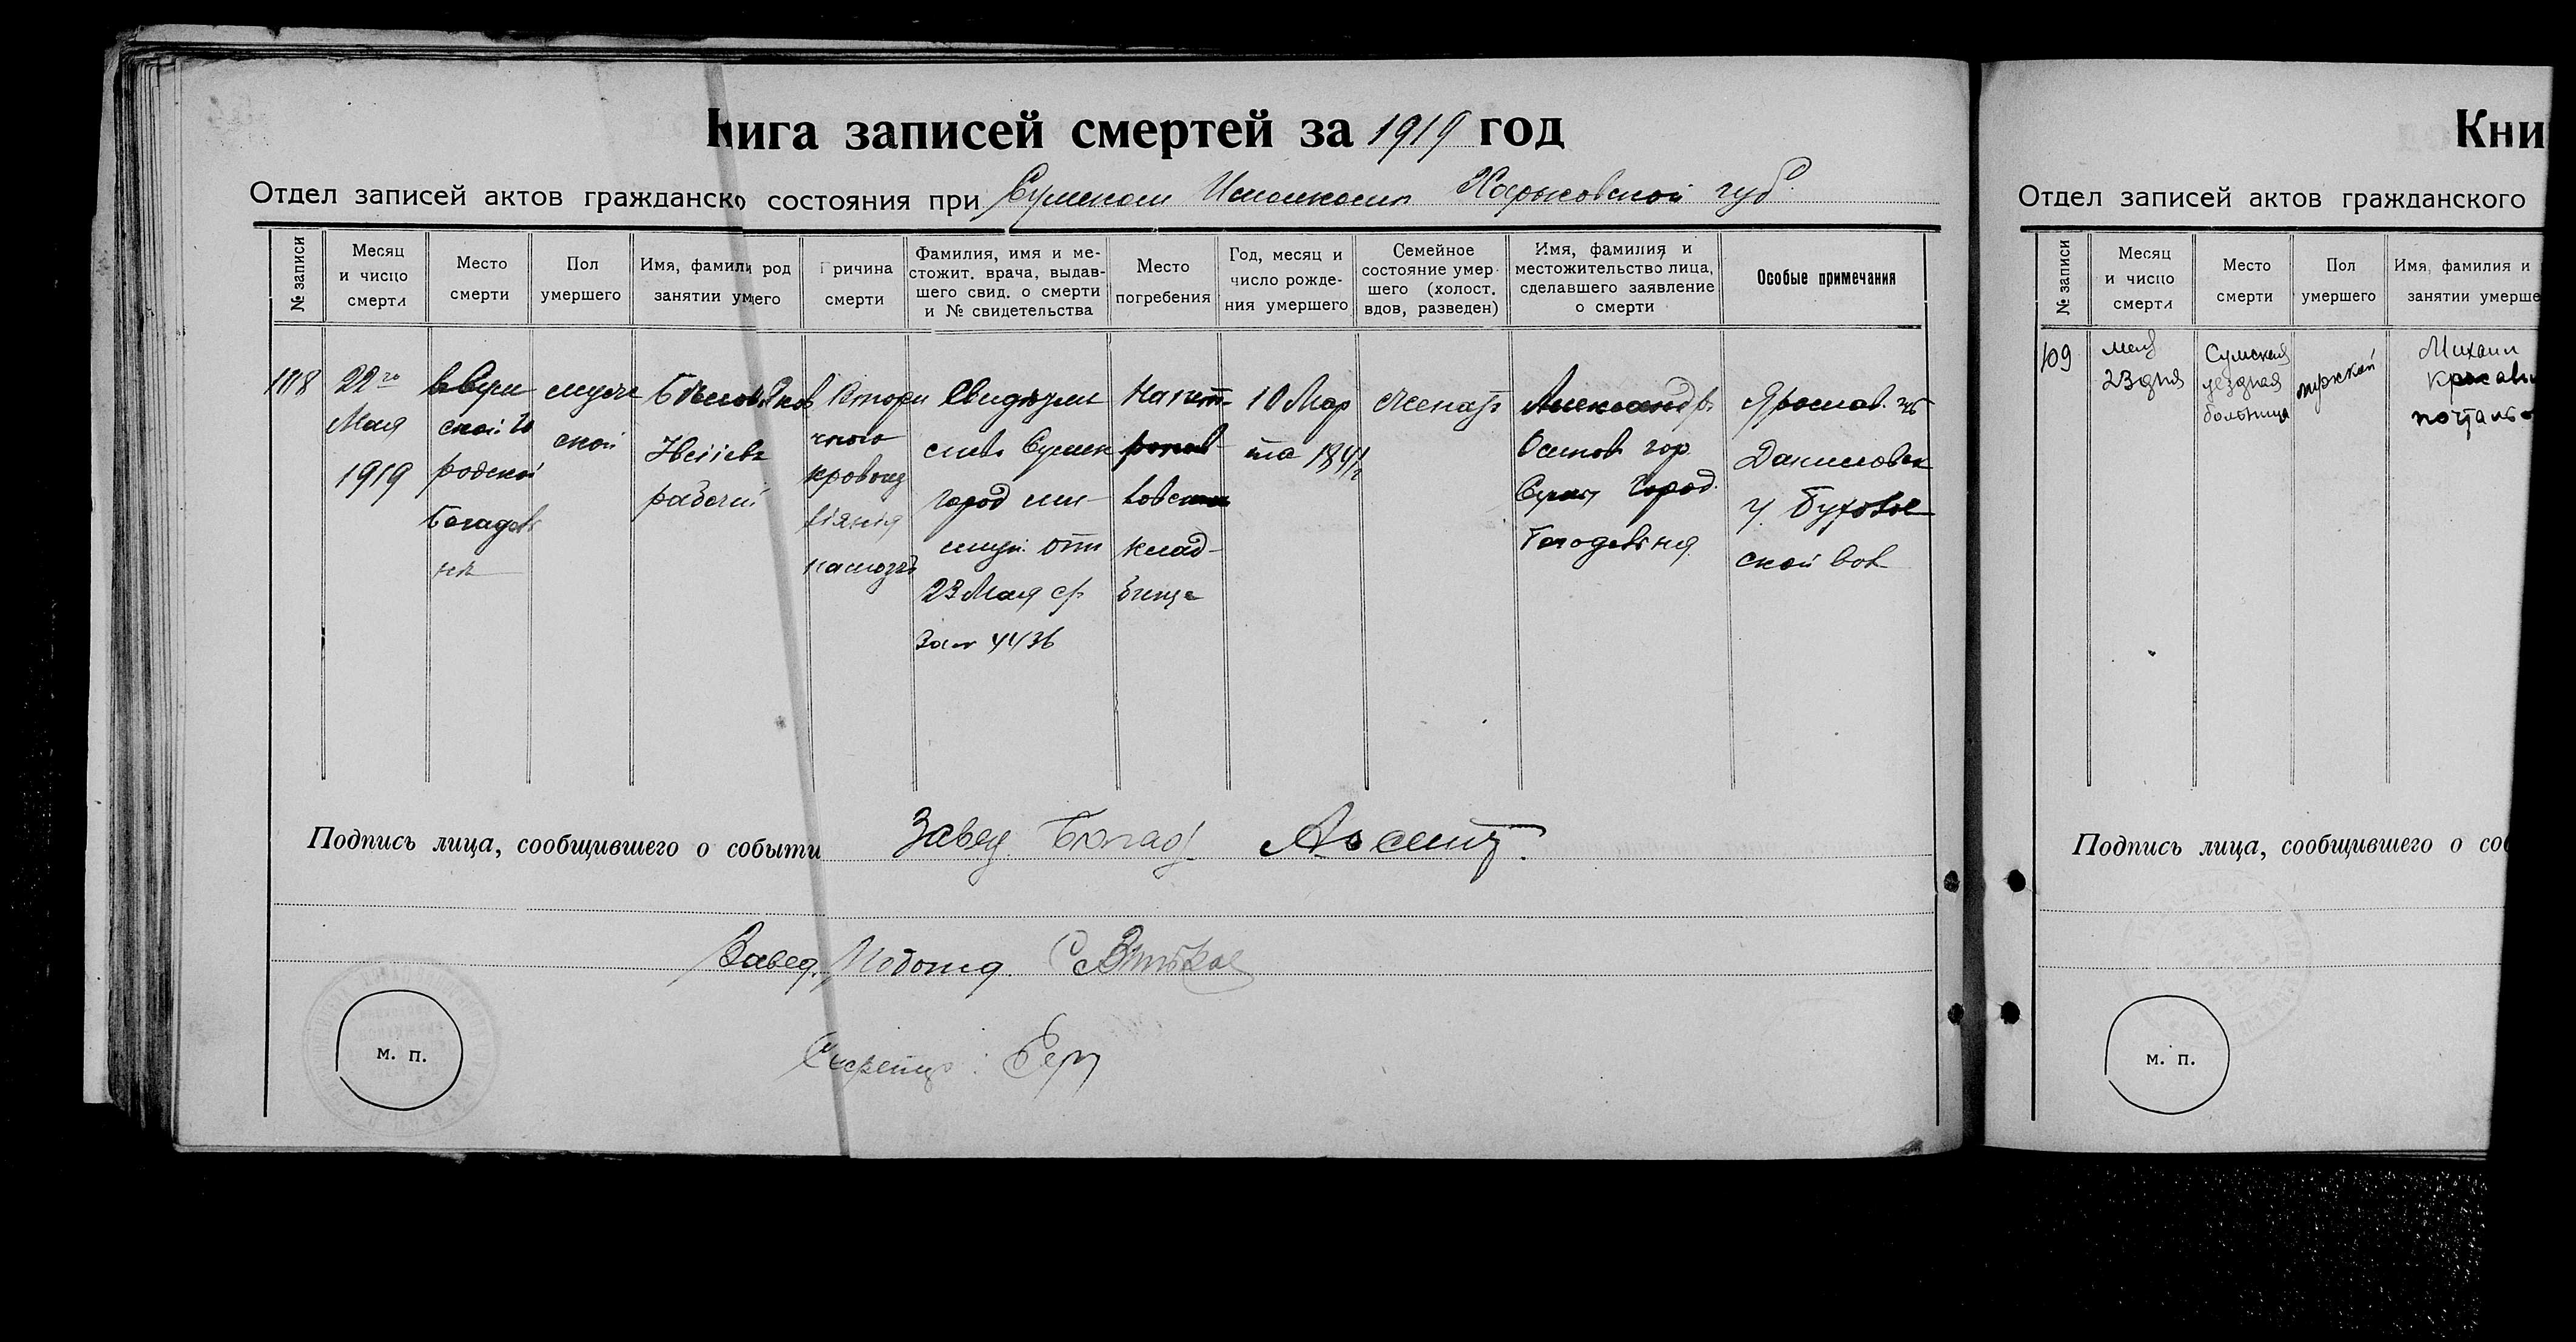 Книга записей смертей за 1919 год
Отдел записей актов гражданско состояния при Сумском Исполкоме Харьковской губ.
№ записи
Месяц
и число
смерти
Место
смерти
Пол
умершего
Имя, фамили род
занятии умщего
Причина
смерти
Фамилия, имя и ме-
стожит. врача, выдав-
шего свид. о смерти
и № свидетельства
Место
погребения
Год, месяц и
число рожде-
ния умершего
Семейное
состояние умер-
шего (холост.
вдов, разведен)
Имя, фамилия и
местожительство лица,
сделавшего заявление
о смерти
Особые примечания
108
22го
Мая
1919
в Сум
ской Го
родской
Богадел
не
мужс
ской
рабочий
кровоиз
лияния
Свидътел
ство Сумск
Город
23 Мая с/г
За № 4436
На пет-
ропав-
ловском
клад-
бище
10 Мар
та 1841 г
Женатъ
Александръ
Осипов гор.
Сумы Город.
Богодельня
Ярослав. губ
Даниловск
у. Бухалов
ской вол
Подпись лица, сообщившего о событи
Завед. Богад.
Завед. Подотд.
Секретарь:
м. п.
Кни
Отдел записей актов гражданского
№ записи
Месяц
и число
смерти
Место
смерти
Пол
умершего
Имя, фамилия и
занятии умерше
109
мая
23 дня
Сумская
уездная
больница
мужской
Михаил
Красав
почталь
Подпись лица, сообщившего о соб
м. п.